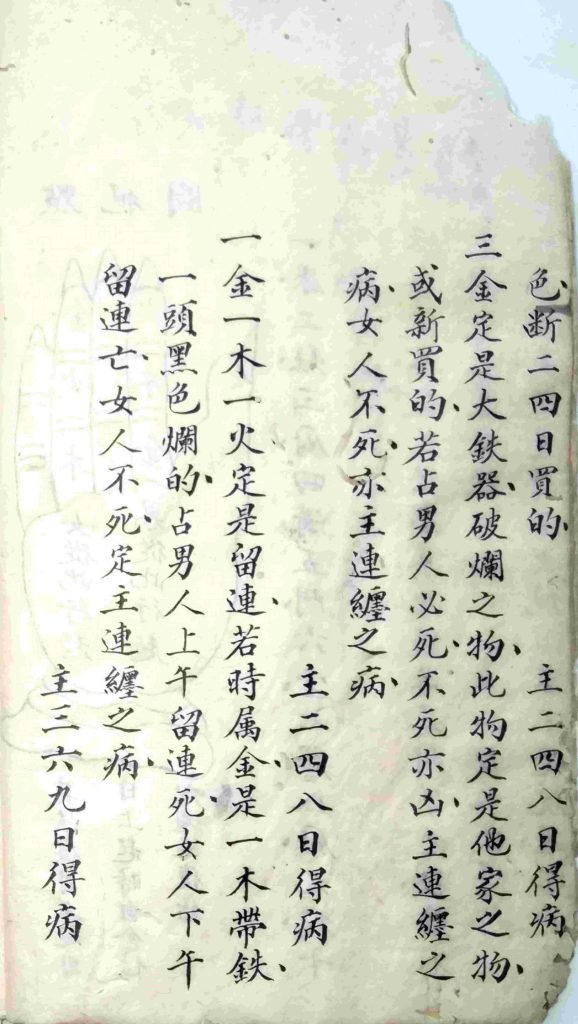 色断二四日買的、　主二四八日得病
三金定是大鉄器破爛之物、此物定是他家之物、
或新買的、若占男人必死、不死亦凶、主連纏之
病、女人不死、亦主連纏之病、
主二四八日得病
一金一木一火定是留連、若時属金、是一木帶鉄、
一頭黑色爛的、占男人上午留連死、女人下午
留連亡、女人不死、定主連纏之病、
主三六九日得病